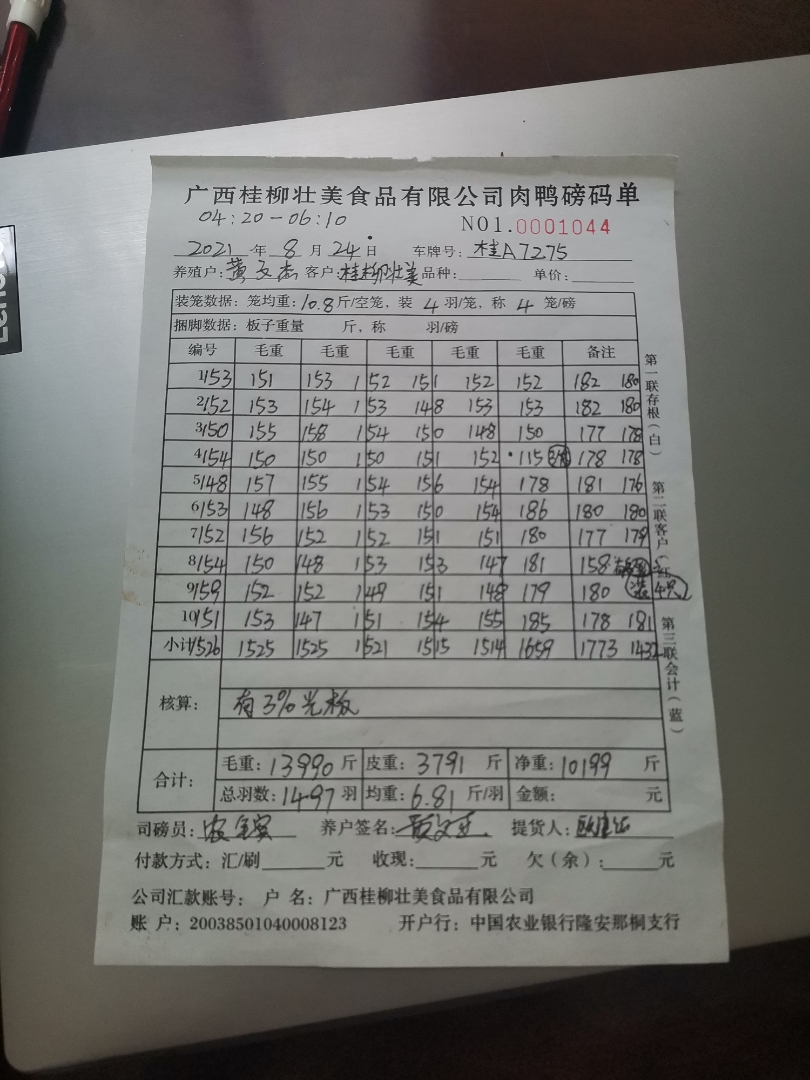 广西桂柳壮美食品有限公司肉鸭磅码单
04:20-06:10 NO1.0001044
2021 年 8 月 24 日 车牌号: 桂A7275
养殖户: 黄文杰 客户: 桂柳壮美 品种: 单价:
装笼数据: 笼均重: 10.8 斤/空笼, 装 4 羽/笼, 称 4 笼/磅
捆脚数据: 板子重量 斤, 称 羽/磅
编号 毛重 毛重 毛重 毛重 毛重 备注
1 153 151 153 152 151 152 152 182 180
2 152 153 154 153 148 153 153 182 180
3 150 155 158 154 150 148 150 177 178
4 154 150 150 150 151 152 115 178 178
5 148 157 155 154 156 154 178 181 176
6 153 148 156 153 150 154 186 180 180
7 152 156 152 152 151 151 180 177 179
8 154 150 148 153 153 147 181 158
9 159 152 152 149 151 148 179 180 装4只
10 151 153 147 151 154 155 185 178 181
小计 1526 1525 1525 1521 1515 1514 1659 1773 1432
核算: 有3%光板
合计: 毛重: 13990 斤 皮重: 3791 斤 净重: 10199 斤
总羽数: 1497 羽 均重: 6.81 斤/羽 金额: 元
司磅员: 养户签名: 黄文杰 提货人:
付款方式: 汇/刷 元 收现: 元 欠(余): 元
公司汇款账号: 户 名: 广西桂柳壮美食品有限公司
账 户: 20038501040008123 开户行: 中国农业银行隆安那桐支行
第一联存根(白) 第二联客户(红) 第三联会计(蓝)
Lenovo